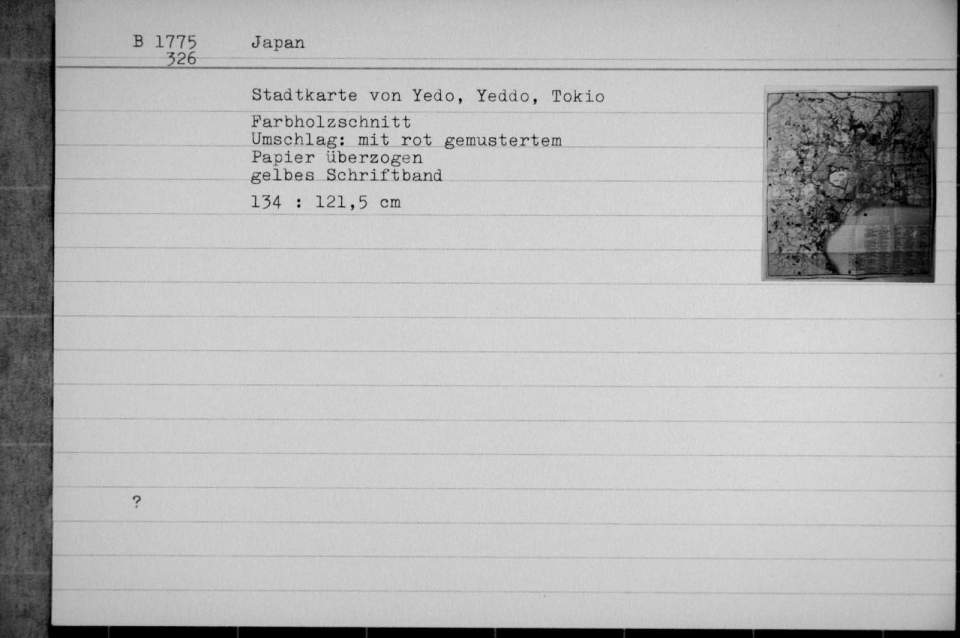 B 1775 Japan
326
Stadtkarte von Yedo, Yeddo, Tokio
Farbholzschnitt
Umschlag: mit rot gemustertem
Papier überzogen
gelbes Schriftband
134 : 121,5 cm
?